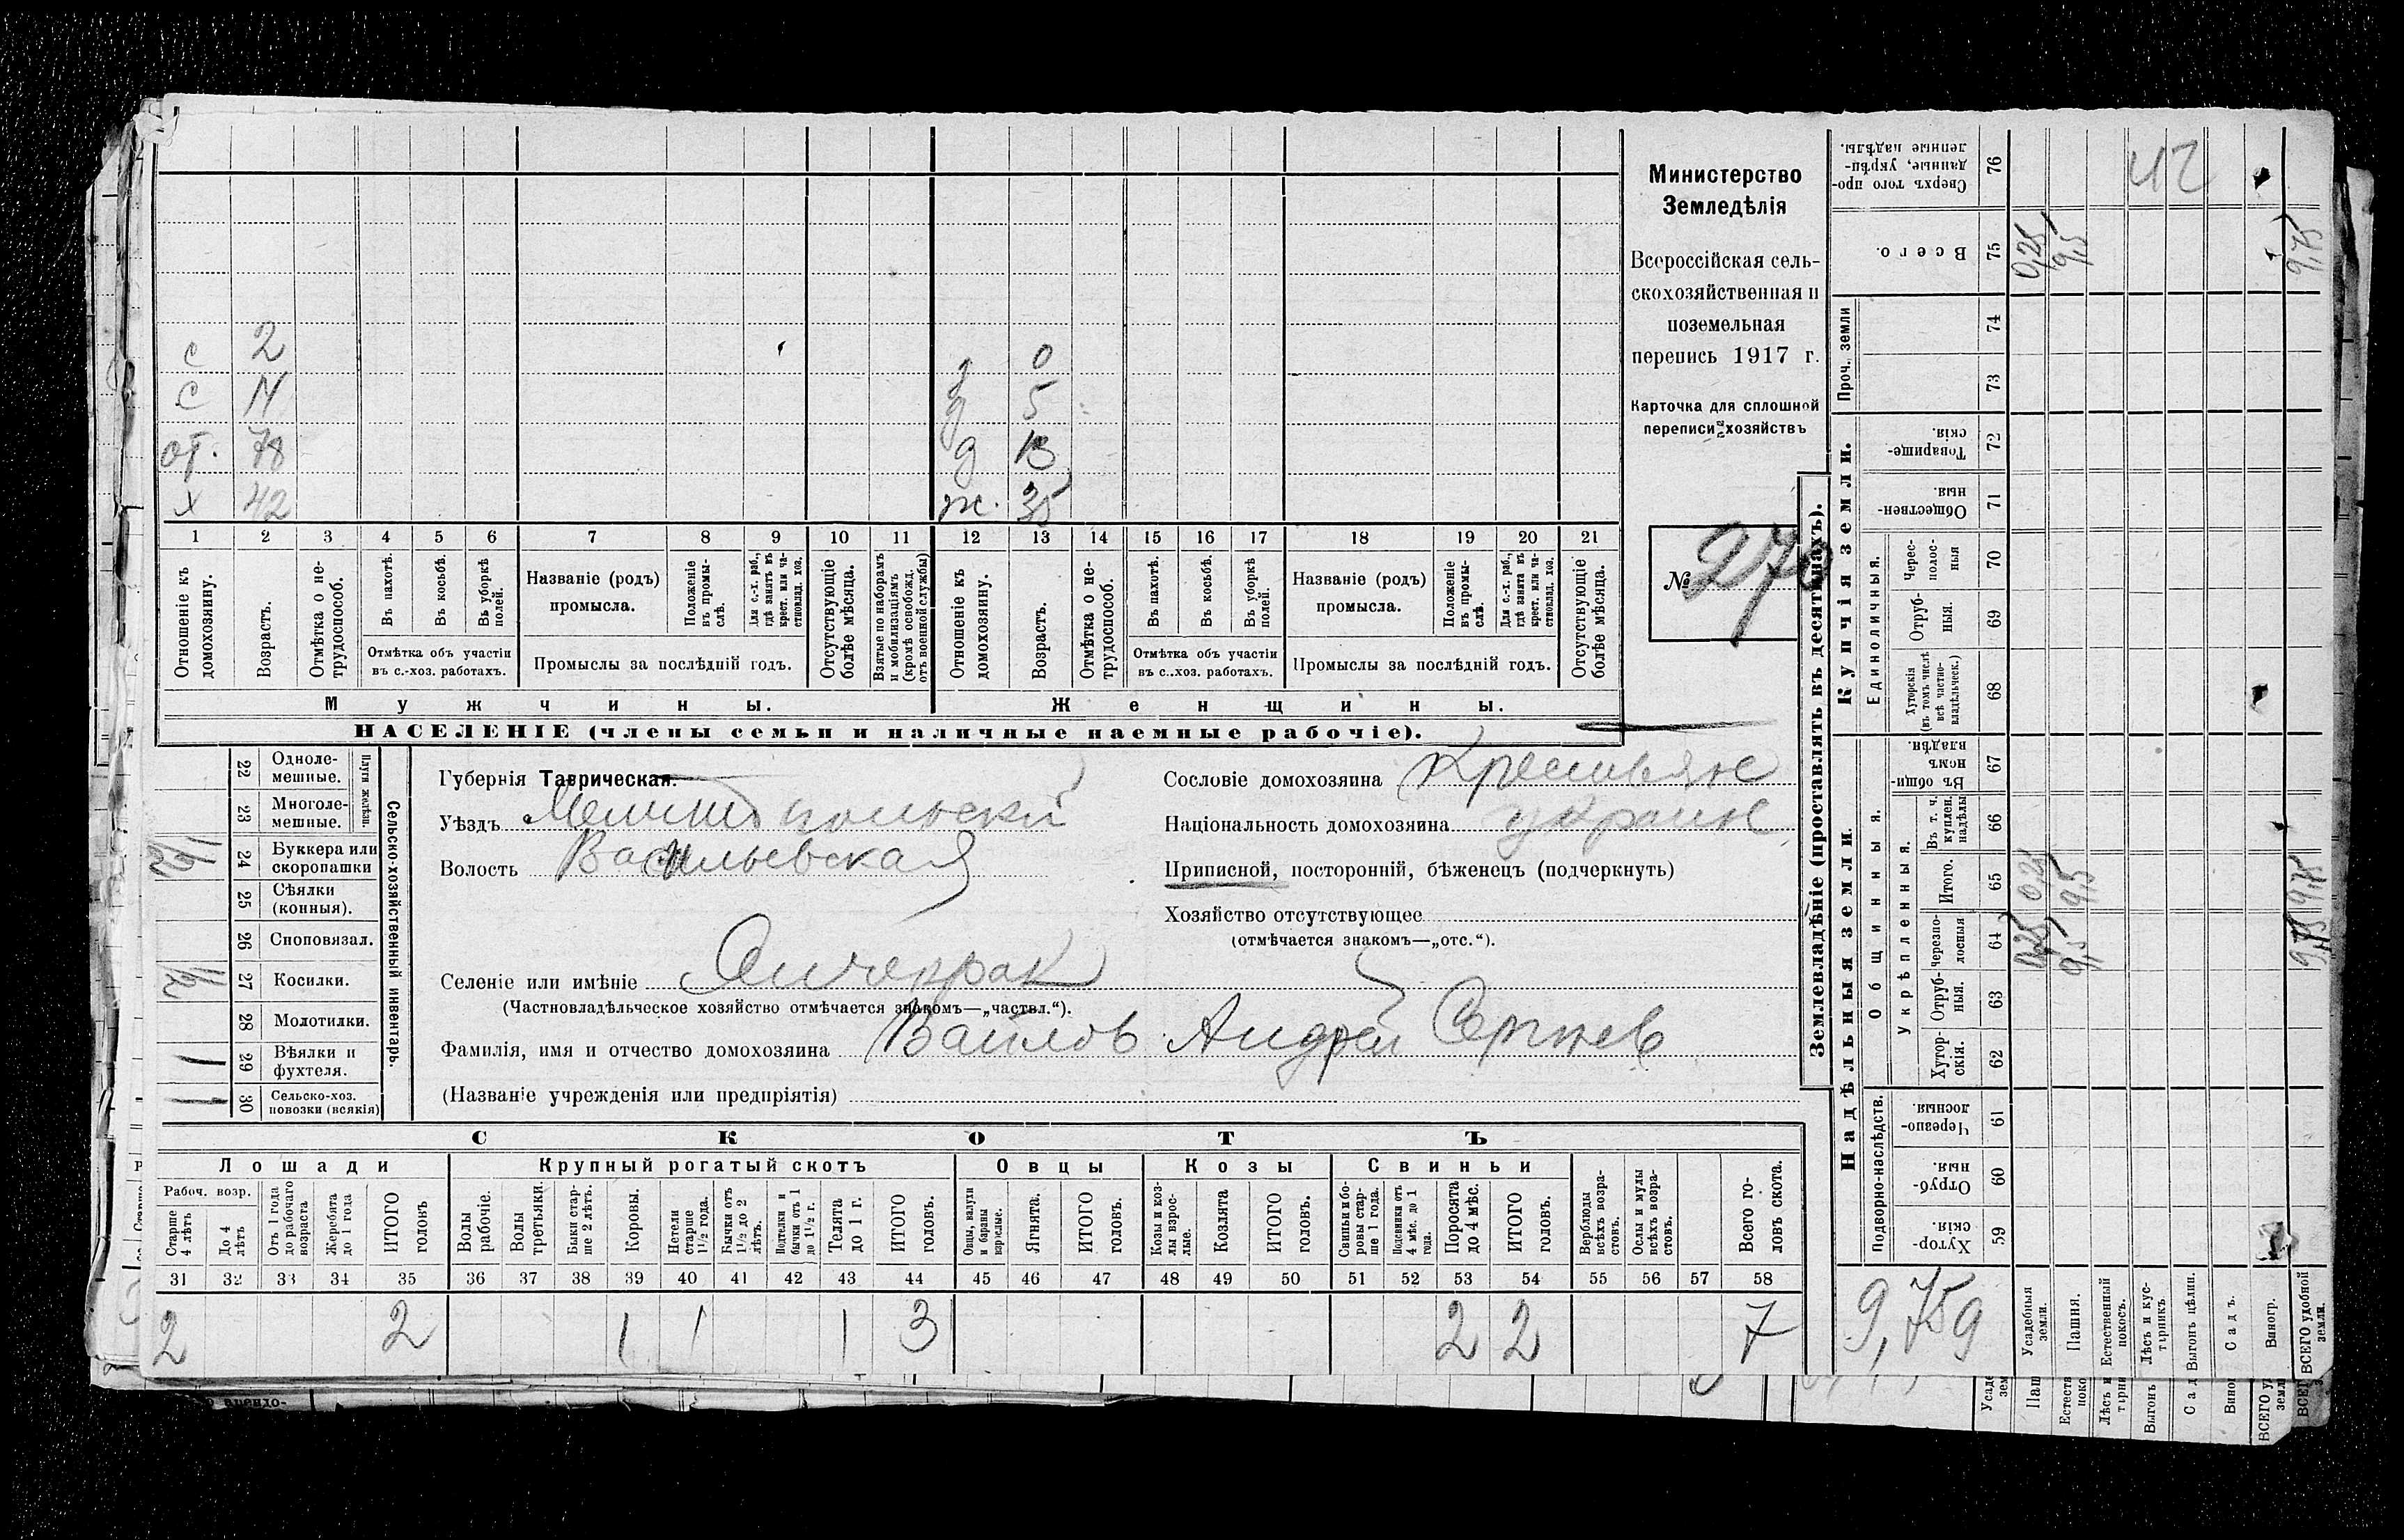 с 2
0
с 14
д 5
от. 78
д 13
х 42
ж. 35
1 2 3 4 5 6 7 8 9 10 11 12 13 14 15 16 17 18 19 20 21
Отношеніе къ домохозяину.
Возрастъ.
Отмѣтка о нетрудоспособ.
Въ пахотѣ.
Въ косьбѣ.
Въ уборкѣ полей.
Отмѣтка объ участіи въ с.-хоз. работахъ.
Названіе (родъ) промысла.
Положеніе въ промыслѣ.
Для с.-х. раб., гдѣ занятъ въ крест. или частновлад. хоз.
Промыслы за послѣдній годъ.
Отсутствующіе болѣе мѣсяца.
Взятые по наборамъ и мобилизаціямъ (кромѣ освобожд. отъ военной службы)
Отношеніе къ домохозяину.
Возрастъ.
Отмѣтка о нетрудоспособ.
Въ пахотѣ.
Въ косьбѣ.
Въ уборкѣ полей.
Отмѣтка объ участіи въ с..хоз. работахъ.
Названіе (родъ) промысла.
Положеніе въ промыслѣ.
Для с.-х. раб., гдѣ занята въ крест. или частновлад. хоз.
Промыслы за послѣдній годъ.
Отсутствующіе болѣе мѣсяца.
Мужчины.
Женщины.
НАСЕЛЕНІЕ (члены семьи и наличные наемные рабочіе).
Министерство
Земледѣлія
Всероссійская сель-
скохозяйственная и
поземельная
перепись 1917 г.
Карточка для сплошной
переписи хозяйствъ
№ 270
22 Одноле-
мешные.
23 Многоле-
мешные.
Плуги желѣзн.
24 Буккера или
скоропашки
25 Сѣялки
(конныя).
26 Сноповязал.
27 Косилки.
28 Молотилки.
1 29 Вѣялки и
фухтеля.
1 30 Сельско-хоз.
повозки (всякія)
Сельско-хозяйственный инвентарь.
Губернія Таврическая.
Уѣздъ Мелитопольскій
Волость Васильевская
Сословіе домохозяина Крестьян
Національность домохозяина украин
Приписной, посторонній, бѣженецъ (подчеркнуть)
Хозяйство отсутствующее
(отмѣчается знакомъ—„отс.“).
Селеніе или имѣніе Янчокрак
(Частновладѣльческое хозяйство отмѣчается знакомъ—„частвл.“).
Фамилія, имя и отчество домохозяина Вайлов Андрей Сергѣев
(Названіе учрежденія или предпріятія)
СКОТЪ
Лошади
Крупный рогатый скотъ
Овцы
Козы
Свиньи
Рабоч. возр.
Старше 4 лѣтъ
До 4 лѣтъ
Отъ 1 года до рабочаго возраста
Жеребята до 1 года
ИТОГО головъ
Волы рабочіе.
Волы третьяки.
Быки старше 2 лѣтъ.
Коровы.
Нетели старше 1½ года.
Бычки отъ 1½ до 2 лѣтъ.
Подтелки и бычки отъ 1 до 1½ г.
Телята до 1 г.
ИТОГО головъ.
Овцы, валухи и бараны взрослые.
Ягнята.
ИТОГО головъ.
Козы и козлы взрослые.
Козлята
ИТОГО головъ.
Свиньи и боровы старше 1 года.
Подсвинки отъ 4 мѣс. до 1 года.
Поросята до 4 мѣс.
ИТОГО головъ.
Верблюды всѣхъ возрастовъ.
Ослы и мулы всѣхъ возрастовъ.
Всего головъ скота.
31 32 33 34 35 36 37 38 39 40 41 42 43 44 45 46 47 48 49 50 51 52 53 54 55 56 57 58
2 2 1 1 1 3 2 2 7
Землевладѣніе (проставлять въ десятинахъ).
Надѣльныя земли.
Купчія земли.
Проч. земли
Подворно-наслѣдств.
Общинныя.
Укрѣпленныя.
Единоличныя.
Хуторскія. 59
Отрубныя. 60
Черезполосныя. 61
Хуторскія. 62
Отрубныя. 63
Черезполосныя 64 0,25 9,5 9,75
Итого. 65 0,25 9,5 9,75
Въ т. ч. куплен. надѣлы 66
Въ общинномъ владѣн. 67
Хуторскія (въ томъ числѣ всѣ частновладѣльческ.) 68
Отрубныя. 69
Чересполосныя 70
Общественныя. 71
Товарищескія. 72
73
74
Всего. 75 0,25 9,5 9,75
Сверхъ того проданные, укрѣпленные надѣлы. 76
42
9,75 9
Усадебныя земли.
Пашня.
Естественный покосъ.
Лѣсъ и кустарникъ
Выгонъ цѣлин.
Садъ.
Виногр.
ВСЕГО удобной земли.